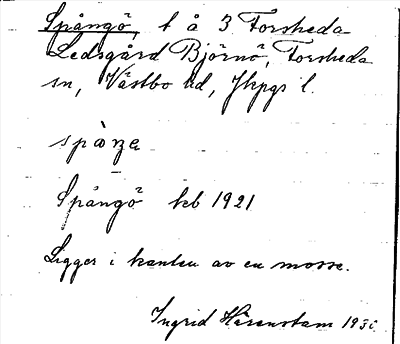 Spångö, t å 3 Forsheda
Ledsgård Björnö, Forsheda
sn, Västbo hd, Jkpgs l.
Spångö kb 1921
Ligger i kanten av en mosse.
Ingrid Härenstam 193